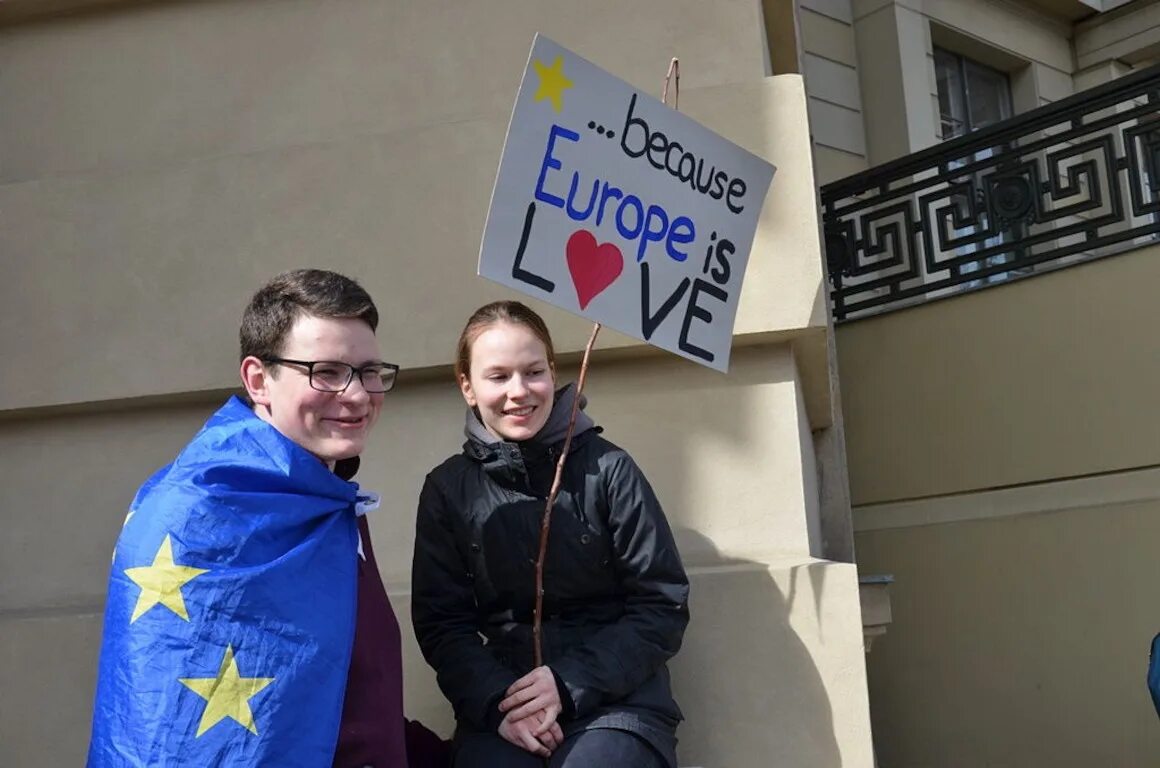 ...because
Europe is
LOVE